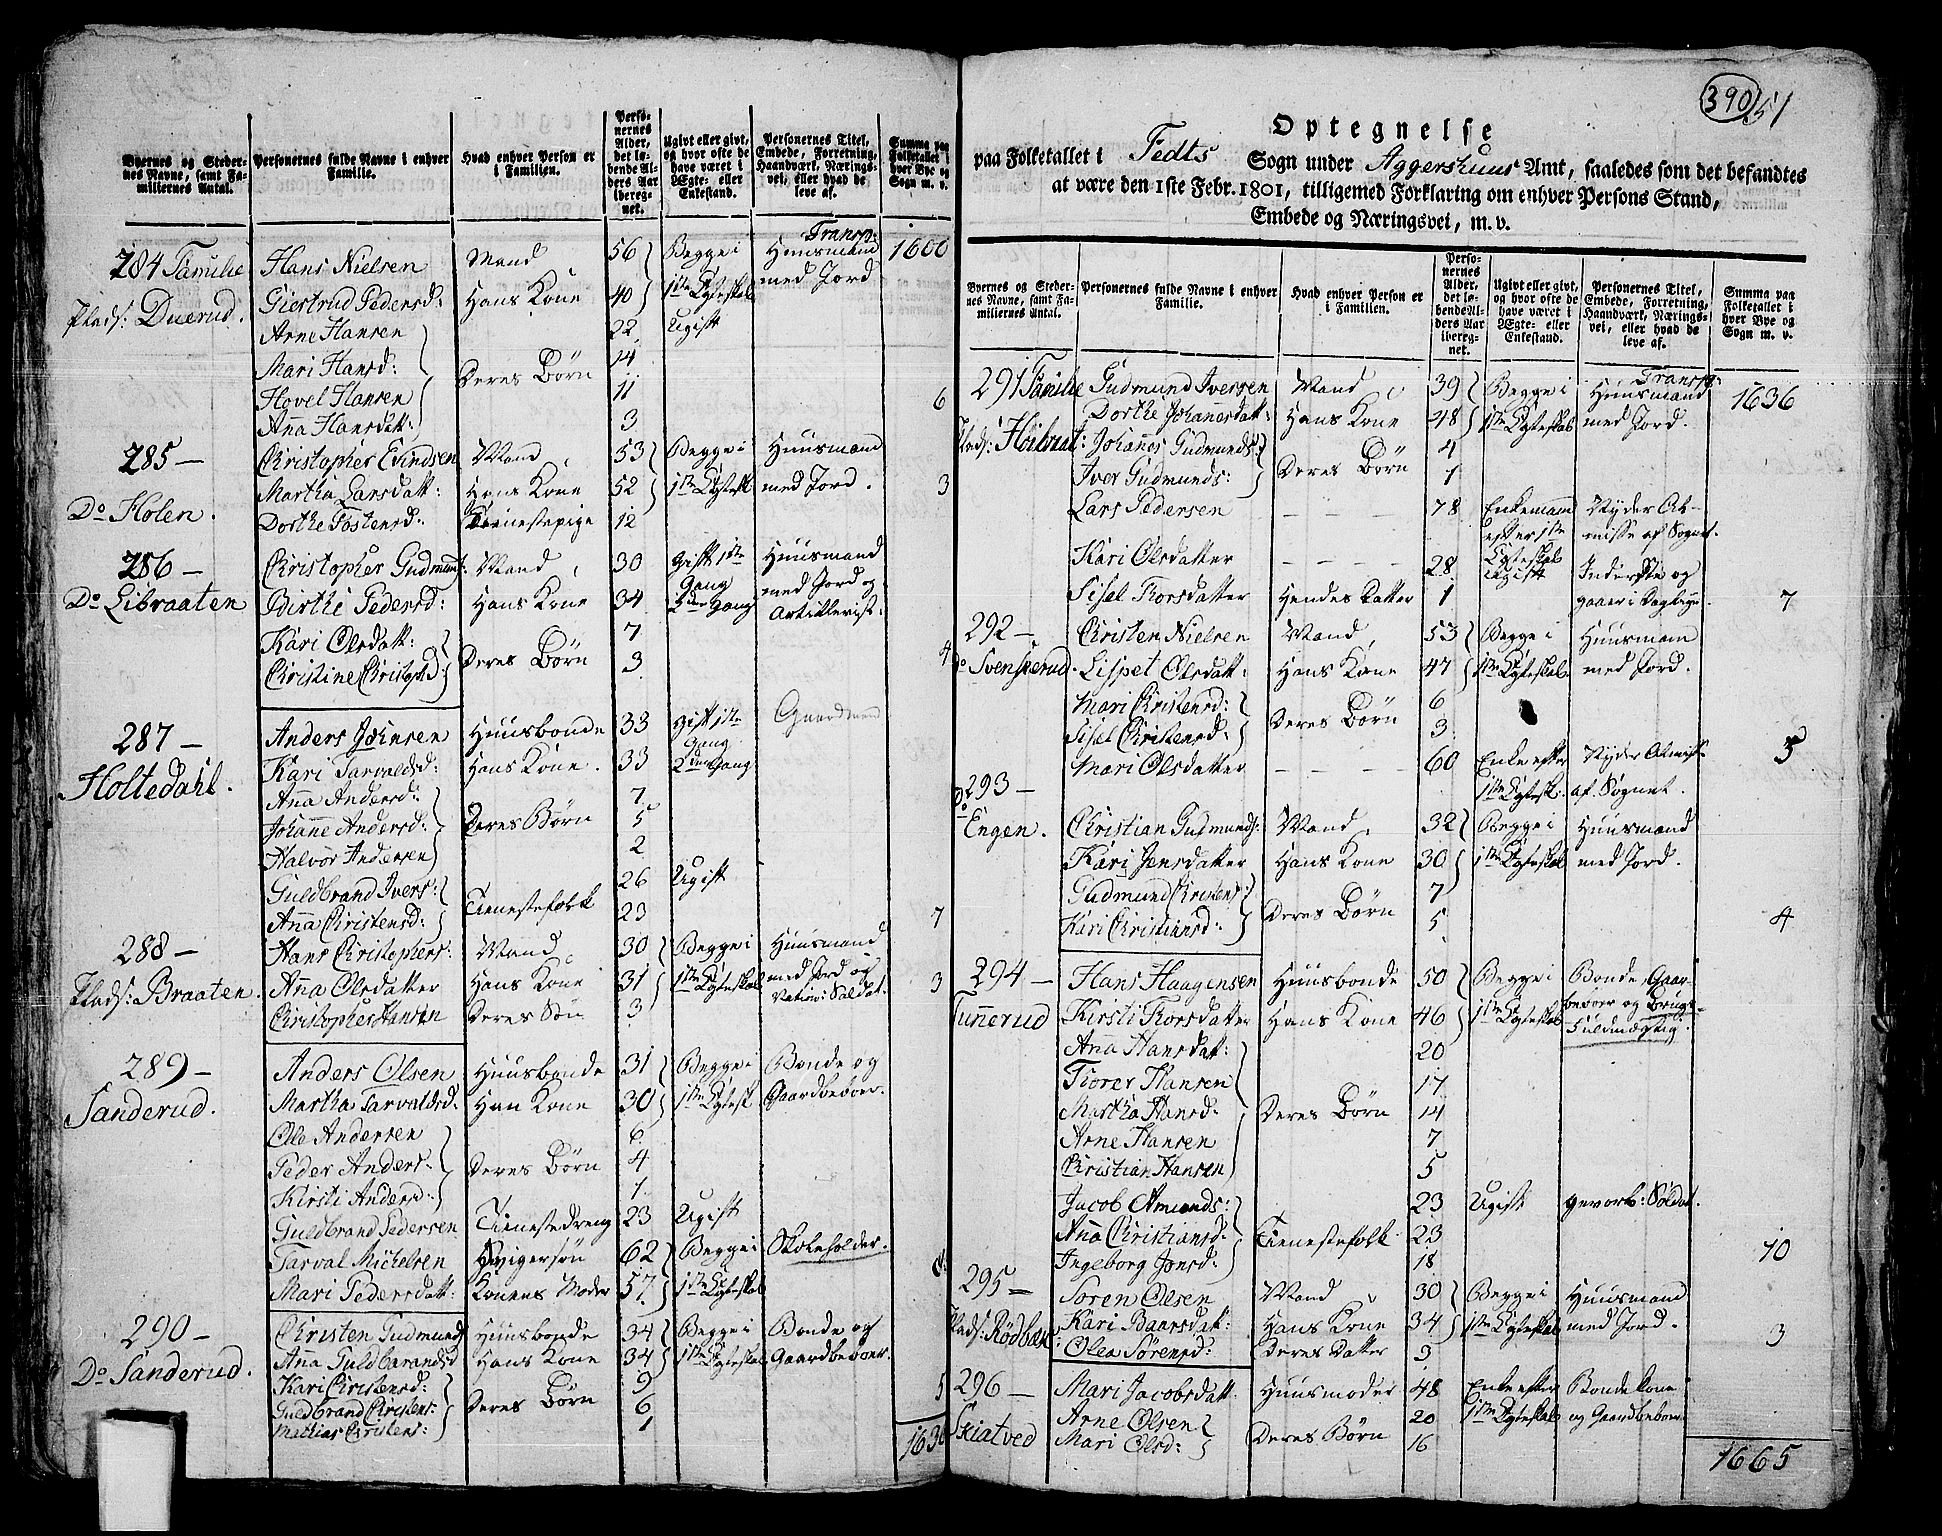 390
51
Byernes og Steder-
nes Navne, samt Fa-
miliernes Antal.
Personernes fulde Navne i enhver
Familie.
Hvad enhver Person er
i Familien.
Perso-
nernes
Alder,
det lø-
bende Al-
ders Aar
ibereg-
net.
Ugivt eller givt,
og hvor ofte de
have været i
Ægte- eller
Enkestand.
Personernes Titel,
Embede, Forretning,
Haandværk, Nærings-
vei, eller hvad de
leve af.
Summa paa
Folketallet i
hver Bye og
Sogn m. v.
Transp:
284 Familie Hans Nielsen Mand 56 Begge i Huusmand 1600
Plads: Duerud. Giertrud Pedersd: Hans Kone 40 1ste Egteskab med Jord
Arne Hansen 22 Ugift
Mari Hansd: Deres Børn 14
Hovel Hansen 11 6
Aña Hansdatt: 3
285 — Christopher Evindsen Mand 53 Begge i Huusmand
Martha Larsdatt: Hans Kone 52 1ste Egtesk med Jord. 3
Do Holen. Dorthe Tostensd: Tienestepige 12
286 — Christopher Gudmunds: Mand 30 Gift 1ste Gang Huusmand
Do Libraaten Birthe Pedersd: Hans Kone 34 2den Gang med Jord og Artillerist.
Kari Olsdatt: 7
Christine Christophd: Deres Børn 3 4
287 — Anders Johnsen Huusbonde 33 Gift 1ste Gang Gaardmand
Holtedahl. Kari Tarvaldsd: Hans Kone. 33 2den Gang
Aña Andersd: 7
Johanne Andersd: Deres Børn 5
Halvor Andersen 2
Guldbrand Ivers: 26 Ugift
Aña Christensd: Tienestefolk 23 7
288 — Hans Christophers: Mand 30 Begge i Huusmand
Plads: Braaten. Ana Olsdatter Hans Kone 31 1ste Egteskab med Jord og Nation: Soldat. 3
Christopher Hansen Deres Søn 3
289 — Anders Olsen Huusbonde 31 Begge i Bonde og
Sanderud. Martha Tarvaldsd: Han Kone 30 1ste Egtesk Gaardbeboer.
Ole Andersen 6
Peder Anders: Deres Børn 4
Kirsti Andersd: 1
Guldbrand Pedersen Tienestedreng 23 Ugift
Tarval Michelsen 62 Begge i Skoleholder.
Mari Pedersdatt: Konens Moder 57 1ste Egteskab
290 — Christen Gudmunds Huusbonde 34 Begge i Bonde og
Do Sanderud. Aña Guldbrandsd Hans Kone 34 1ste Egteskab Gaardbeboer
Kari Christensd: 9
Guldbrand Christens: Deres Børn 6 5
Mathias Christens: 1
1636
Optegnelse
paa Folketallet i Fedts Sogn under Aggershuus Amt, saaledes som det befandtes
at være den 1ste Febr. 1801, tilligemed Forklaring om enhver Persons Stand,
Embede og Næringsvei, m. v.
Byernes og Steder-
nes Navne, samt Fa-
miliernes Antal.
Personernes fulde Navne i enhver
Familie.
Hvad enhver Person er
i Familien.
Perso-
nernes
Alder,
det lø-
bende Al-
ders Aar
ibereg-
net.
Ugivt eller givt,
og hvor ofte de
have været i
Ægte- eller
Enkestand.
Personernes Titel,
Embede, Forretning,
Haandværk, Nærings-
vei, eller hvad de
leve af.
Summa paa
Folketallet i
hver Bye og
Sogn m. v.
Transp:
291 Familie Gudmund Iversen Mand 39 Begge i Huusmand 1636
Dorthe Johanesdatt: Hans Kone 48 1ste Egteskab med Jord.
Plads: Høibraat: Johanes Gudmunds: 4
Iver Gudmunds: Deres Børn 1
Lars Pedersen — — — — 78 Enkemann efter 1ste Egteskab Nyder Al-
misse af Sognet.
Kari Olsdatter — — — — 28 Ugift Inderste og
Sisel Thorsdatter Hendes Datter 1 gaaer i Dagleye. 7
292 — Christen Nielsen Mand 53 Begge i Huusmann
Do Svenskerud. Lispet Olsdatt: Hans Kone 47 1ste Egteskab med Jord.
Mari Christensd: 6
Sisel Christensd: Deres Børn 3
Mari Olsdatter — — — — 60 Enke efter Nyder Almiss 5
1ste Egtesk: af Sognet.
293 —
Do Engen. Christian Gudmunds: Mand 32 Begge i Huusmand
Kari Jensdatter Hans Kone 30 1ste Egteskab med Jord.
Gudmund Christens: 7
Kari Christiansd: Deres Børn 5 4
294 — Hans Haagensen Huusbonde 50 Begge i Bonde, Gaar-
beboer og Brugs-
Tunerud Kirsti Thorsdatter Hans Kone 46 1ste Egteskab Fuldmægtig.
Ana Hansdat: 20
Tiorer Hansen 17
Martha Hansd: Deres Børn 14
Arne Hansen 7
Christian Hansen 5
Jacob Amunds: 23 Ugift gevorb: Soldat.
Aña Christiansd: Tienestefolk 23
Ingeborg Jonsd: 18 10
295 — Soren Olsen Mand 30 Begge i Huusmand
Plads: Rødbæk: Kari Baarsdatt: Hans Kone 34 1ste Egteskab med Jord. 3
Olea Sørensd: Deres Datter 3
296 — Mari Jacobsdatt. Huusmoder 48 Enke efter Bonde kone
Skiatved Arne Olsen 20 1ste Egteskab og Gaardbeboer
Mari Olsd: Deres Børn 16
1665